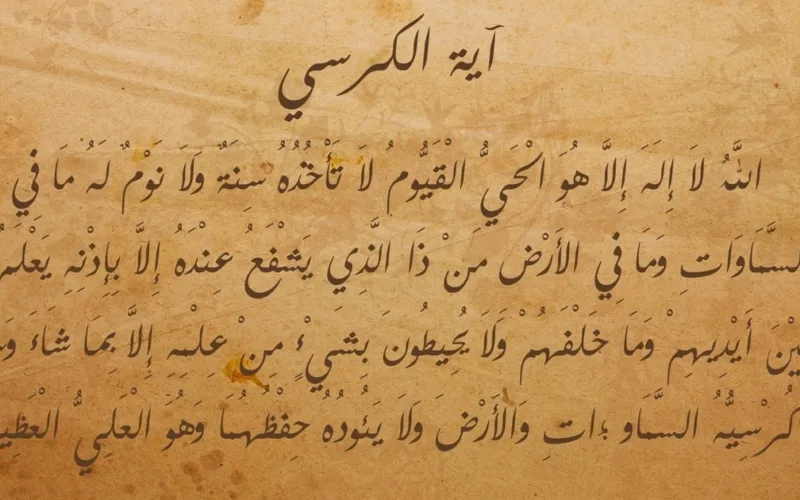 آية الكرسي
اللَّهُ لَا إِلَهَ إِلَّا هُوَ الْحَيُّ الْقَيُّومُ لَا تَأْخُذُهُ سِنَةٌ وَلَا نَوْمٌ لَهُ مَا فِي
السَّمَاوَاتِ وَمَا فِي الأَرْضِ مَنْ ذَا الَّذِي يَشْفَعُ عِنْدَهُ إِلَّا بِإِذْنِهِ يَعْلَمُ
أَيْدِيهِمْ وَمَا خَلْفَهُمْ وَلَا يُحِيطُونَ بِشَيْءٍ مِنْ عِلْمِهِ إِلَّا بِمَا شَاءَ
كُرْسِيُّهُ السَّمَاو ءاتِ وَالأَرْضَ وَلَا يَئُودُهُ حِفْظُهُمَا وَهُوَ الْعَلِيُّ